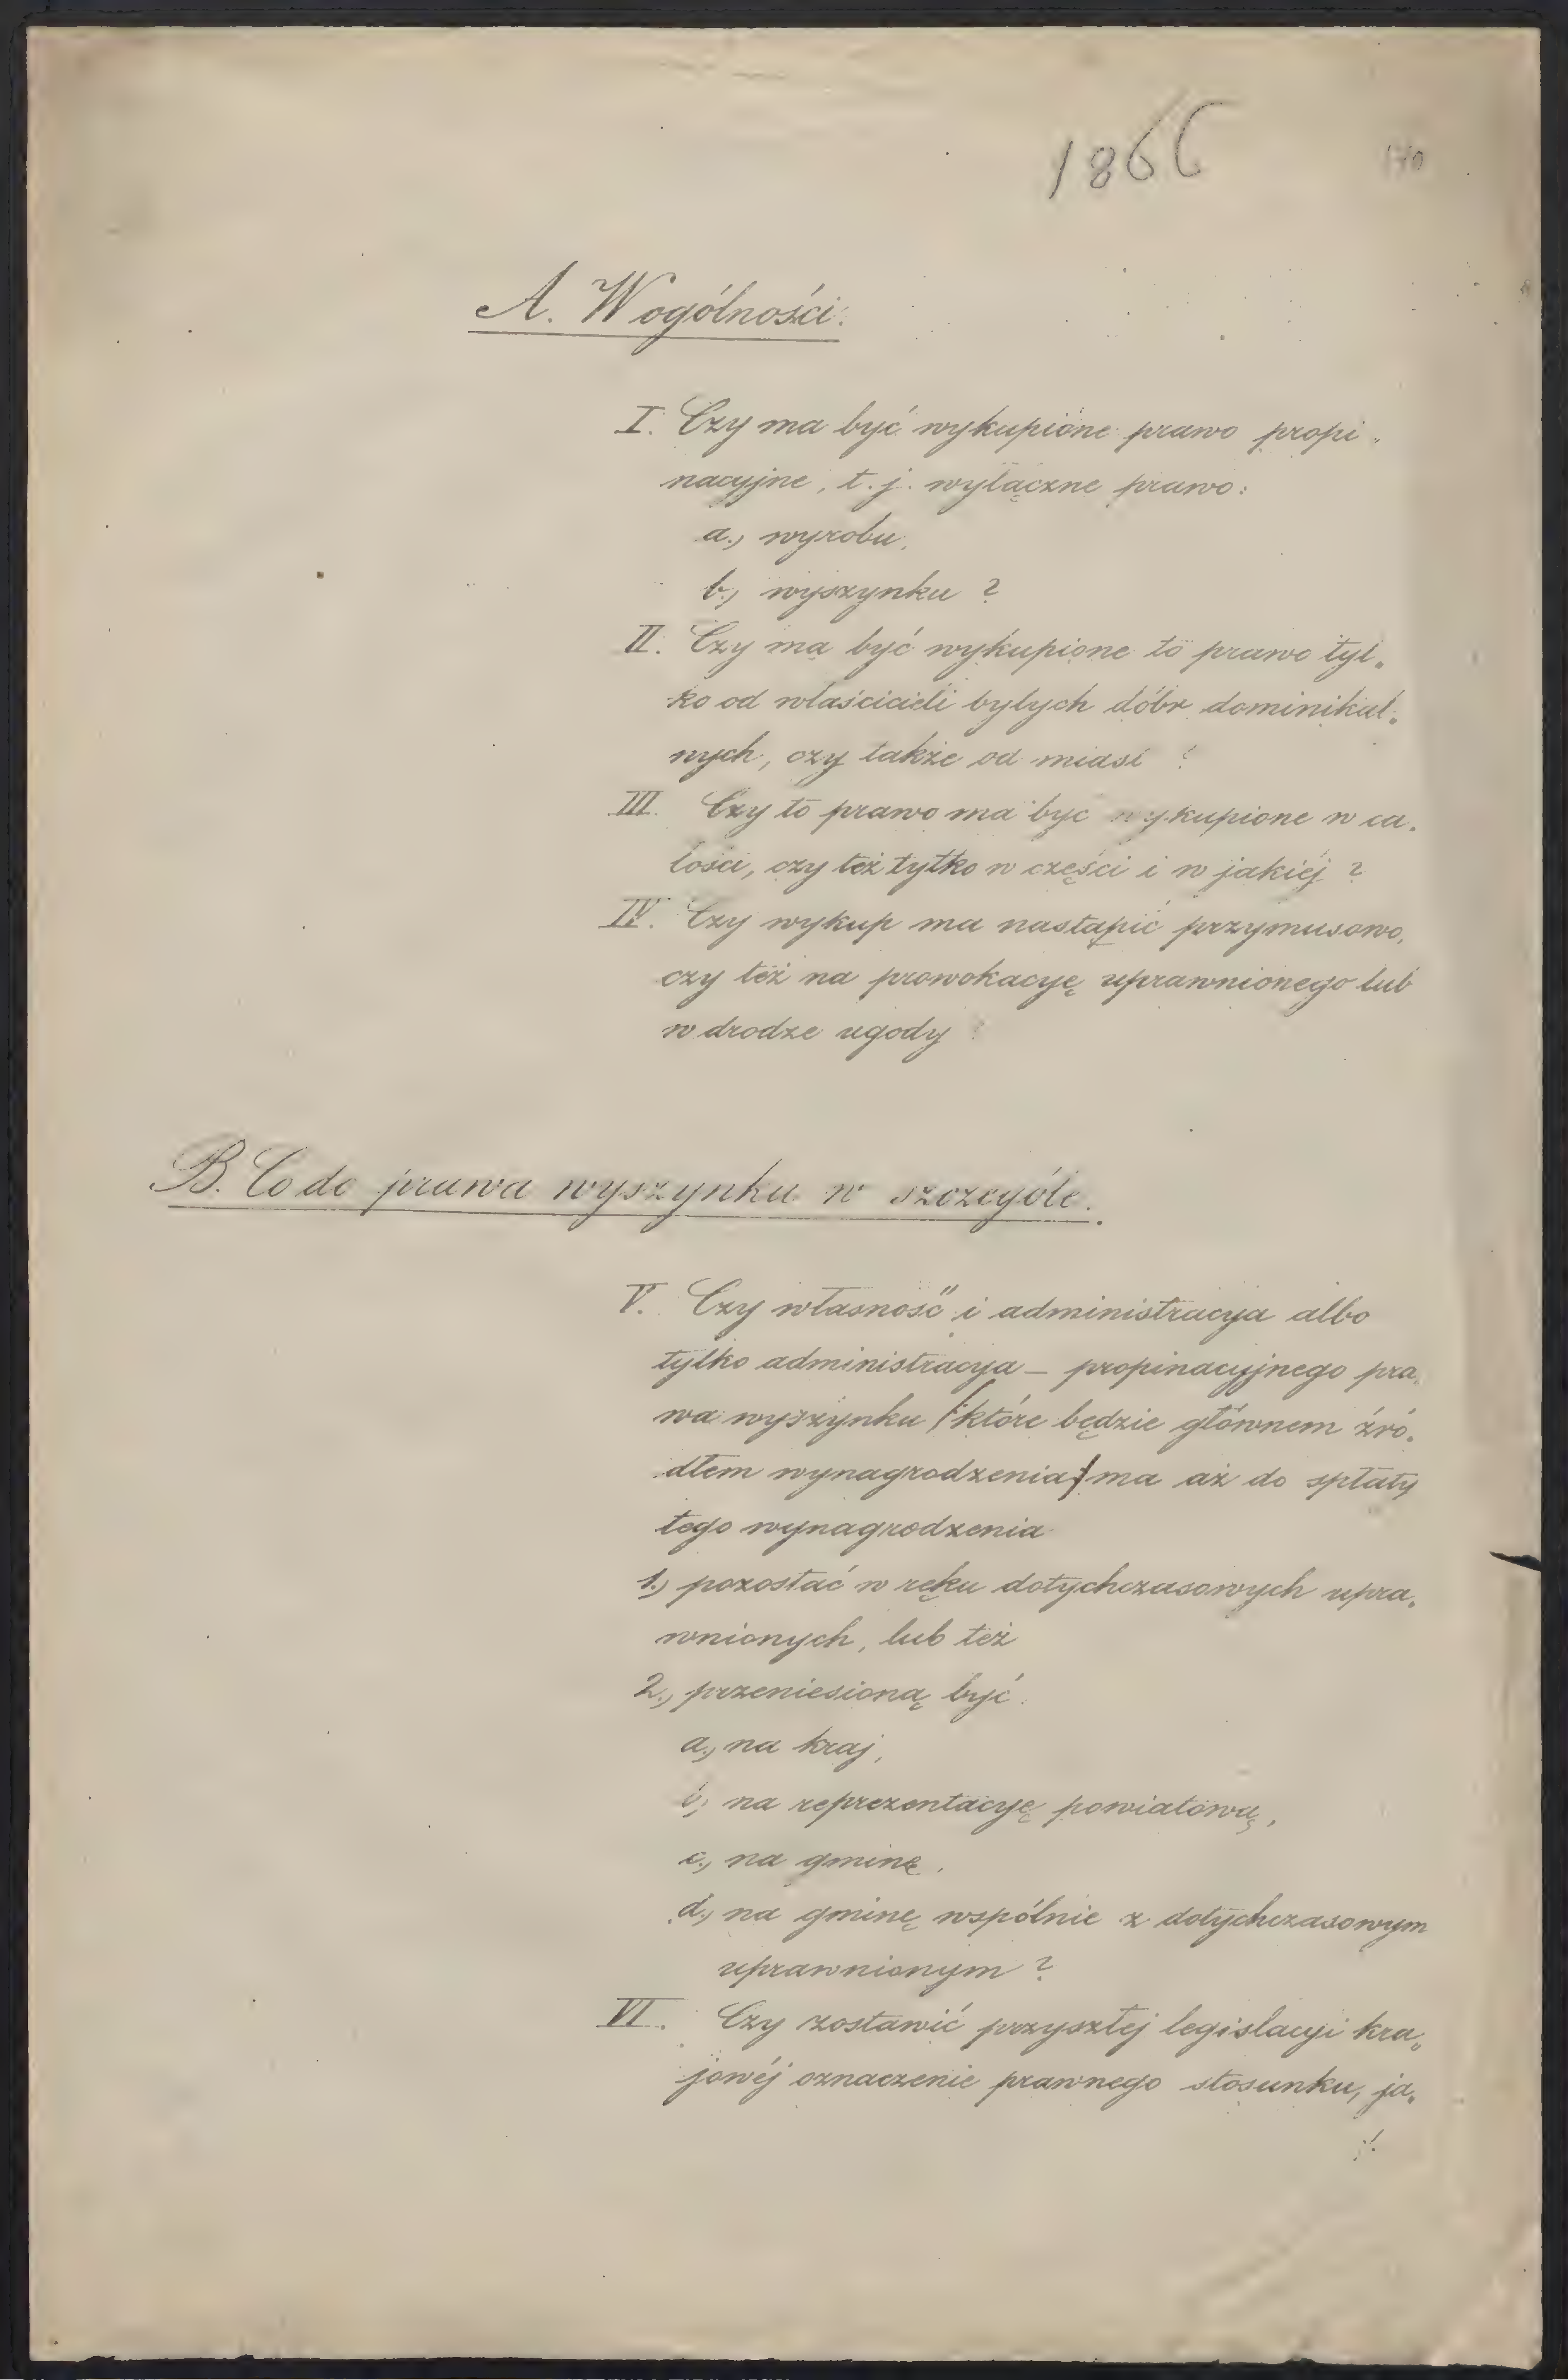 1866
170
A. W ogólności.
I. Czy ma być wykupione prawo propi„
nacyjne, t. j. wyłączne prawo:
a.) wyrobu,
b.) wyszynku ?
II. Czy ma być wykupione to prawo tyl„
ko od właścicieli byłych dóbr dominikal„
nych, czy także od miast ?
III. Czy to prawo ma być wykupione w ca„
łości, czy też tylko w części i w jakiéj ?
IV. Czy wykup ma nastąpić przymusowo,
czy też na prowokacyę uprawnionego lub
w drodze ugody ?
B. Co do prawa wyszynku w szczególe.
V. Czy własność i administracya albo
tylko administracya – propinacyjnego pra„
wa wyszynku /:które będzie głównem źró„
dłem wynagrodzenia:/ ma aż do spłaty
tego wynagrodzenia
1.) pozostać w ręku dotychczasowych upra„
wnionych, lub też
2.) przeniesioną być:
a.) na kraj,
b.) na reprezentacyę powiatową,
c.) na gminę,
d.) na gminę wspólnie z dotychczasowym
uprawnionym ?
VI. Czy zostawić przyszłej legislacyi kra„
jowéj oznaczenie prawnego stosunku, ja„
./.